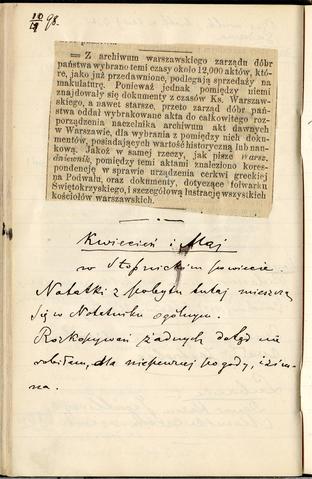 98.
= Z archiwum warszawskiego zarządu dóbr
państwa wybrano temi czasy około 12,000 aktów, któ-
re, jako już przedawnione, podlegają sprzedaży na
makulaturę. Ponieważ jednak pomiędzy niemi
znajdowały się dokumenty z czasów Ks. Warszaw-
skiego, a nawet starsze, przeto zarząd dóbr pań-
stwa oddał wybrakowane akta do całkowitego roz-
porządzenia naczelnika archiwum akt dawnych
w Warszawie, dla wybrania z pomiędzy nich doku-
mentów, posiadających wartość historyczną lub nau-
kową. Jakoż w samej rzeczy, jak pisze Warsz.
dniewnik, pomiędzy temi aktami znaleziono kores-
pondencję w sprawie urządzenia cerkwi greckiej
na Podwalu, oraz dokumenty, dotyczące folwarku
Świętokrzyskiego, i szczegółową lustrację wszystkich
kościołów warszawskich.
Kwiecień i Maj
w Stopnickim powiecie.
Notatki z pobytu tutaj mieszczą
się w Notatniku ogólnym.
Rozkopywań żadnych dotąd nie
robiłem, dla niepewnej pogody, i zim-
na.